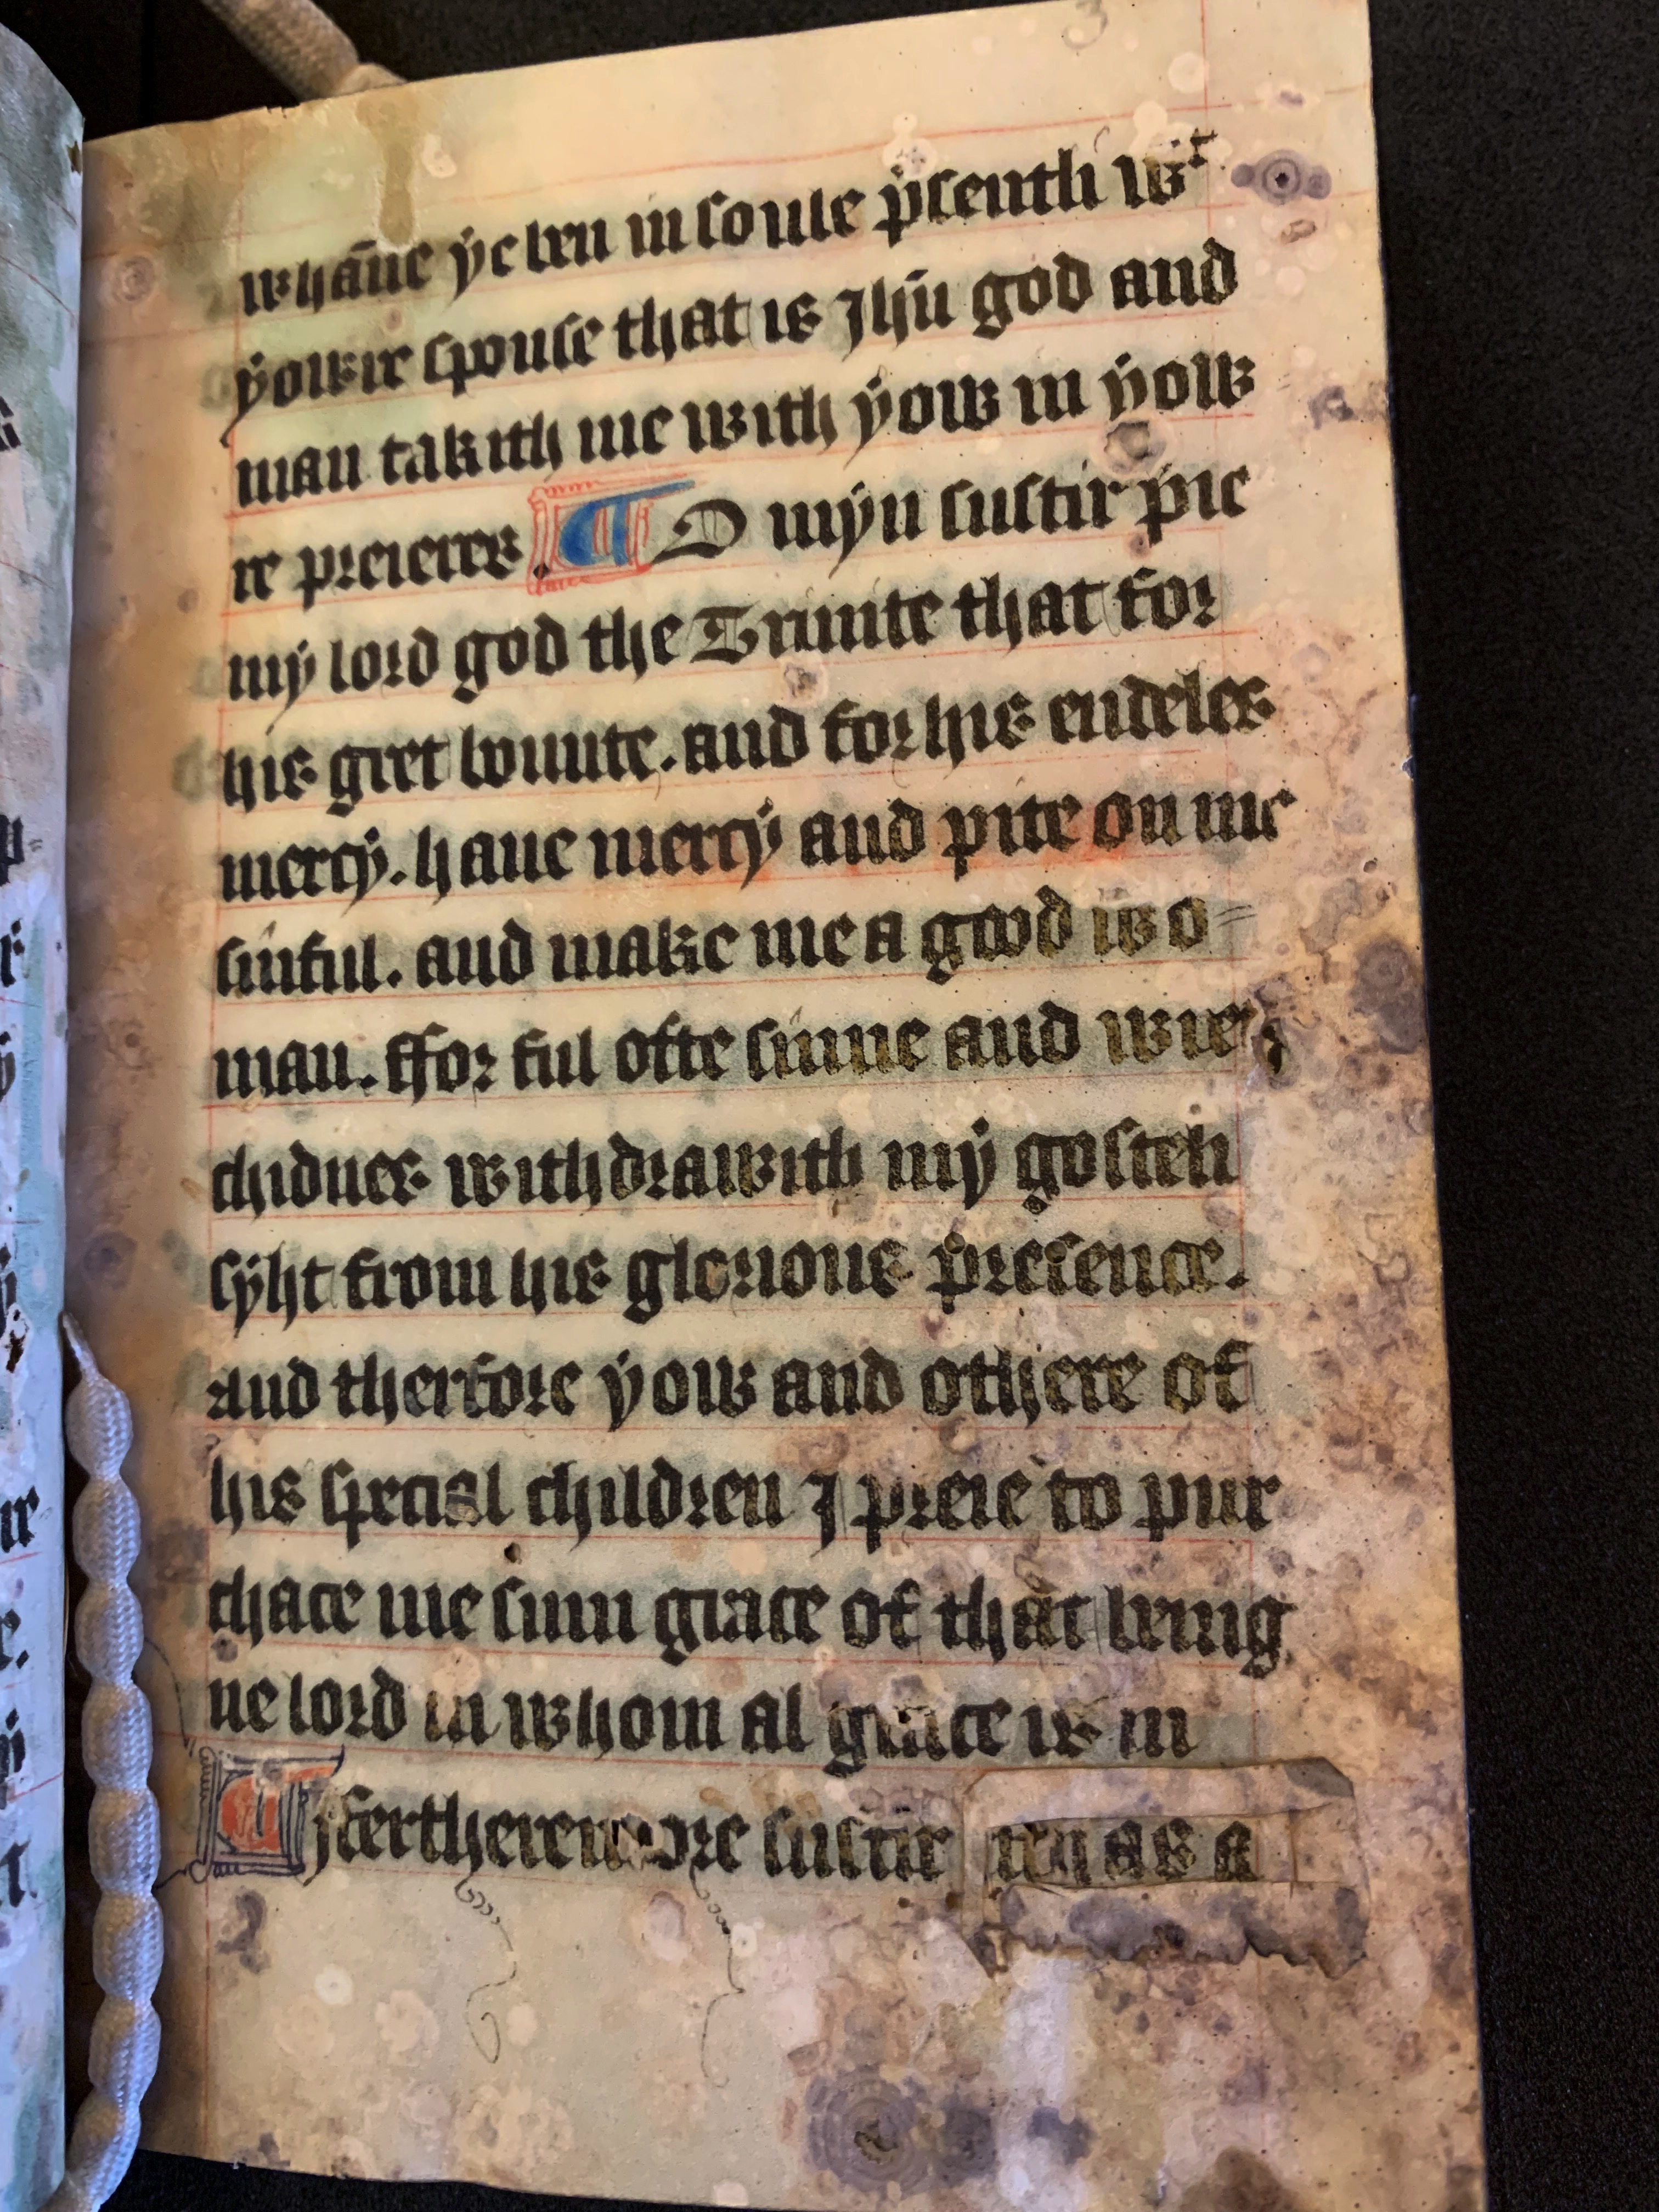 3
whāne ȳe ben in soule p̄sentli wᵗ
ẏowir spouse that is Jhū god and
man takith me with ẏow in ẏow
re preieres. O myn sustir preie
my lord god the Trinite that for
his gret bounte. and for his endeles
mercẏ. haue mercẏ and pite on me
sinful. and make me a good wo=
man. ffor ful ofte sinne and wre
chidnes withdrawith mẏ gosteli
sẏht from his glorious presence.
and therfore ẏow and othere of
his special children J preie to pur
chace me sum grace of that bening
ne lord in whom al grace is in
ffertheremore sustir as a